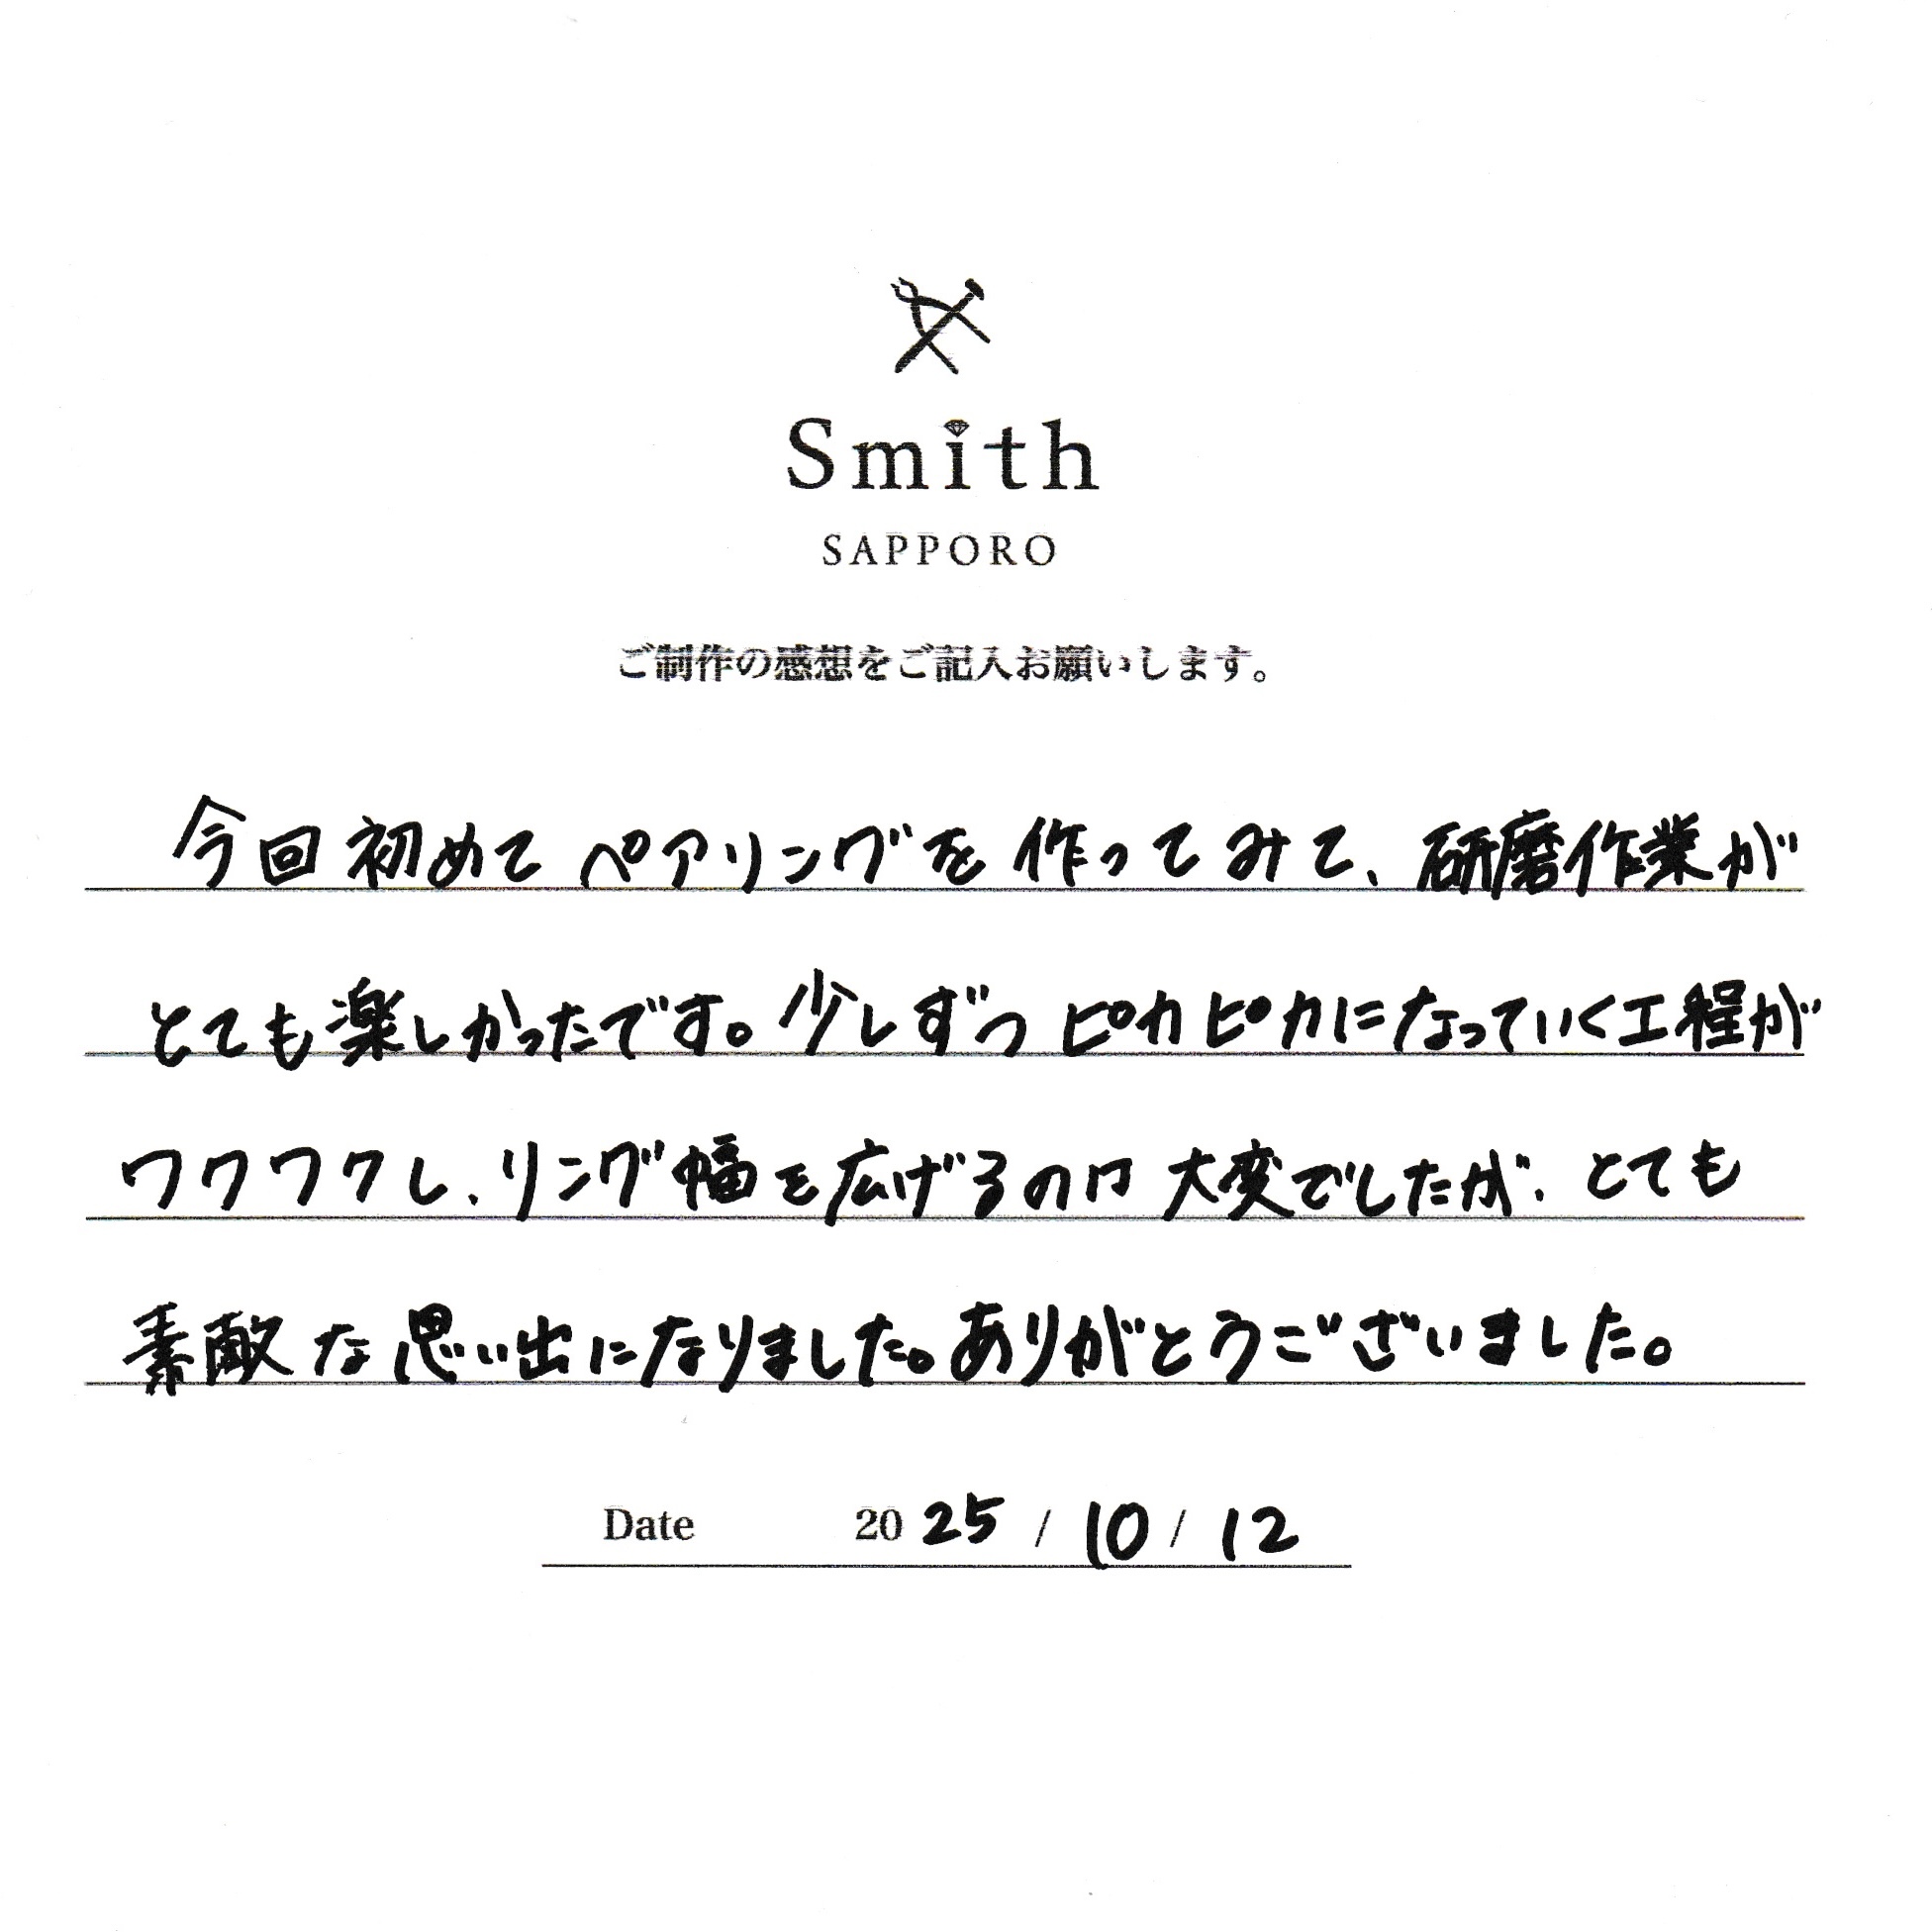 Smith
SAPPORO
ご制作の感想をご記入お願いします。
今回初めてペアリングを作ってみて、研磨作業が
とても楽しかったです。少しずつピカピカになっていく工程が
ワクワクし、リング幅を広げるのは大変でしたが、とても
素敵な思い出になりました。ありがとうございました。
Date 2025 / 10 / 12